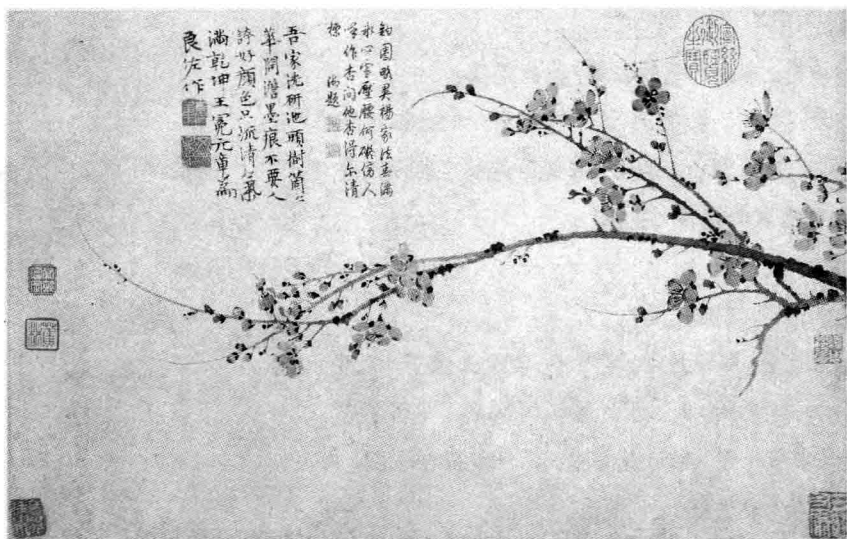 鉤圈略異楊家法春滿
冰心雪壓腰何礙傍人
呼作杏問他杏得尔清
標 御題
吾家洗研池頭樹箇〻
華開澹墨痕不要人
誇好顏色只流清氣
滿乾坤王冕元章為
良佐作